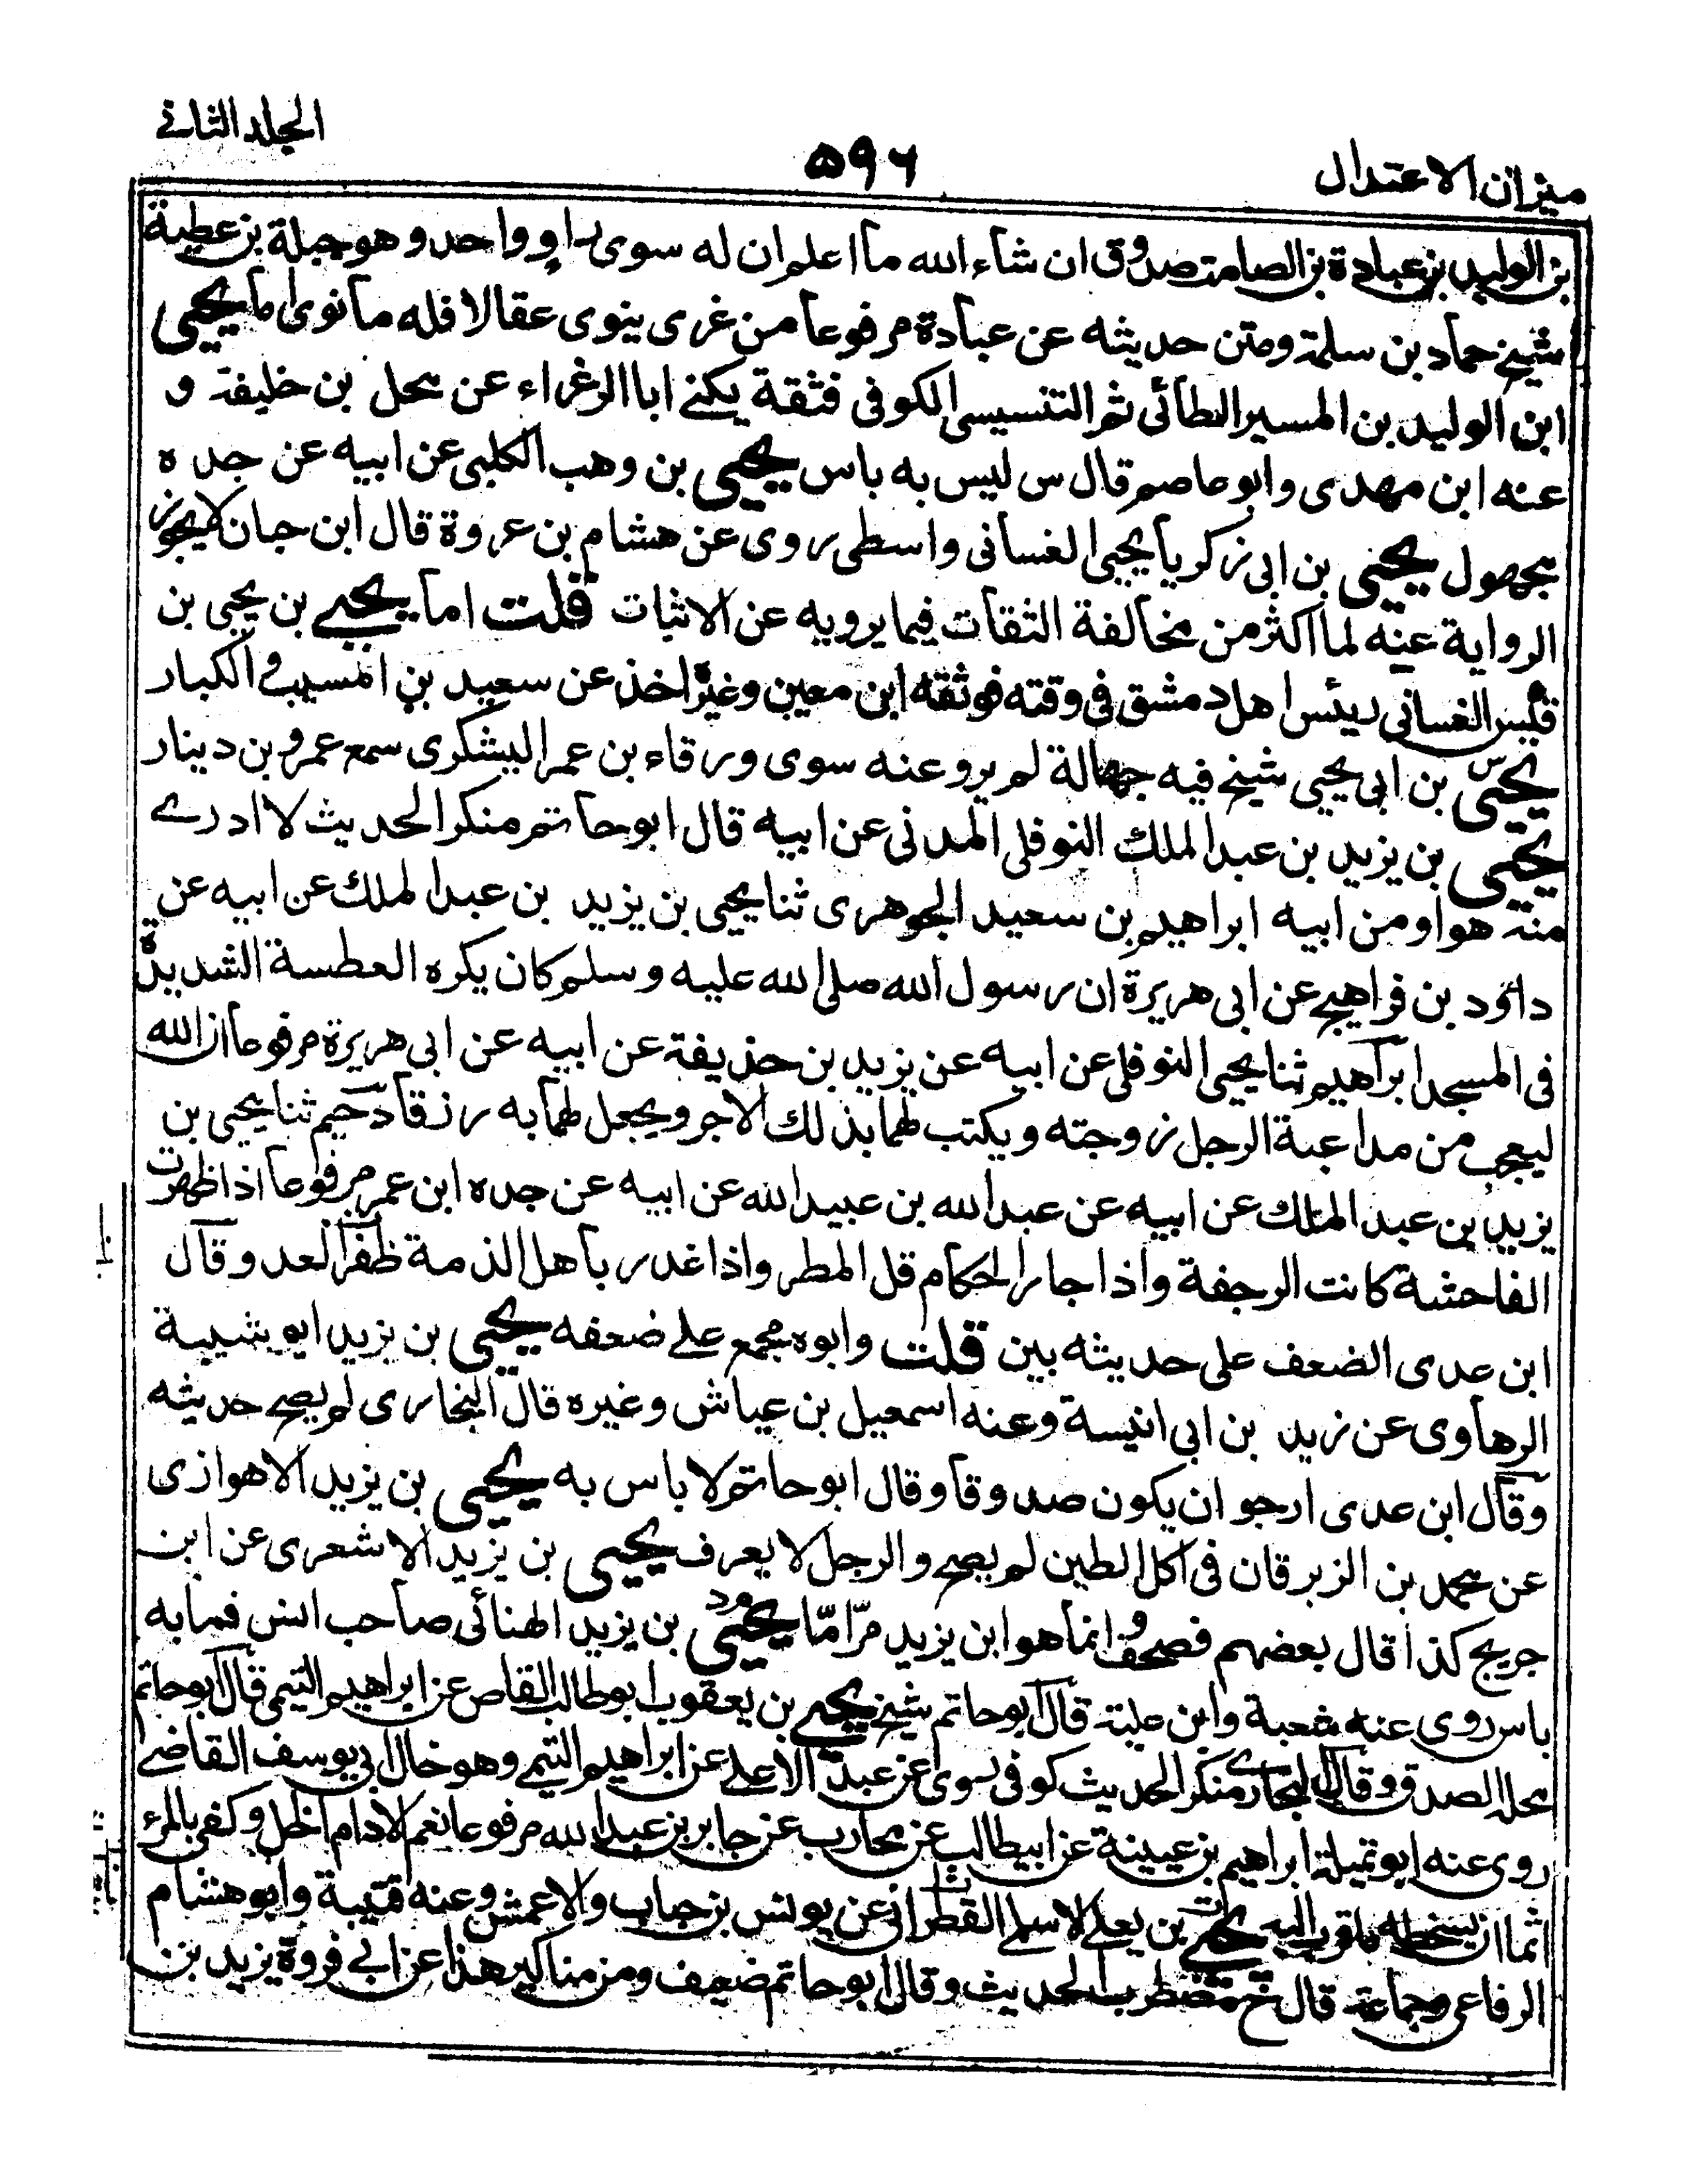 ميزان الاعتدال
۵۹۶
الجلد الثانے
بن الوليد بن عبادة بن الصامت صدوق ان شاء الله ما اعلم ان له سوى راو واحد وهو جبلة بن عطية
شيخ حماد بن سلمة ومتن حديثه عن عبادة مرفوعا من غزى ينوى عقالا فله ما نوى اما يحيى
ابن الوليد بن المسير الطائى ثم التنسيسى الكوفى فثقة يكنے ابا الزغراء عن محل بن خليفة و
عنه ابن مهدى وابو عاصم قال س ليس به باس يحيى بن وهب الكلبى عن ابيه عن جده
مجهول يحيى بن ابى زكريا يحيى الغسانى واسطى روى عن هشام بن عروة قال ابن حبان لا يجوز
الرواية عنه لما اكثر من مخالفة الثقات فيما يرويه عن الاثبات قلت اما يحيے بن يحيى بن
قيس الغسانى رئيس اهل دمشق فى وقته فوثقه ابن معين وغيره اخذ عن سعيد بن المسيب والكبار
يحيى بن ابى يحيى شيخ فيه جهالة لم يرو عنه سوى ورقاء بن عمر اليشكرى سمع عمرو بن دينار
يحيى بن يزيد بن عبد الملك النوفلى المدنى عن ابيه قال ابو حاتم منكر الحديث لا ادرے
منه هو او من ابيه ابراهيم بن سعيد الجوهرى ثنا يحيى بن يزيد بن عبد الملك عن ابيه عن
داؤد بن فراهيج عن ابى هريرة ان رسول الله صلى الله عليه وسلم كان يكره العطسة الشديدة
فى المسجد ابراهيم ثنا يحيى النوفلى عن ابيه عن يزيد بن حذيفة عن ابيه عن ابى هريرة مرفوعا ان الله
ليعجب من مداعبة الرجل زوجته ويكتب لهما بذلك الاجر ويجعل لهما به رزقا دحيم ثنا يحيى بن
يزيد بن عبد الملك عن ابيه عن عبد الله بن عبيد الله عن ابيه عن جده ابن عمر مرفوعا اذا ظهرت
الفاحشة كانت الرجفة واذا جار الحكام قل المطر واذا غدر باهل الذمة ظفر العدو قال
ابن عدى الضعف على حديثه بين قلت وابوه مجمع علے ضعفه يحيى بن يزيد ابو شيبة
الرهاوى عن زيد بن ابى انيسة وعنه اسمعيل بن عياش وغيره قال البخارى لم يصح حديثه
وقال ابن عدى ارجو ان يكون صدوقا وقال ابو حاتم لا باس به يحيى بن يزيد الاهوازى
عن محمد بن الزبرقان فى اكل الطين لم يصح والرجل لا يعرف يحيى بن يزيد الاشعرى عن ابن
جريج كذا قال بعضهم فصحف وانما هو ابن يزيد مرّ امّا يحيى بن يزيد الهنائى صاحب انس فما به
باس روى عنه شعبة وابن علية قال ابو حاتم شيخ يحيے بن يعقوب ابو طالب القاص عن ابراهيم التيمى قال ابو حاتم
محله الصدق وقال البخارے منكر الحديث كوفى سوى عن عبد الاعلے عن ابراهيم التيمے وهو خال ابى يوسف القاضے
روى عنه ابو تميلة ابراهيم بن عيينة عن ابيطالب عن محارب عن جابر بن عبد الله مرفوعا نعم الادام الخل وكفى بالمرء
اثما ان يسخط ما قرب اليه يحيے بن يعلے الاسلمے القطرانى عن يونس بن خباب والاعمش وعنه قتيبة وابو هشام
الرفاعى وجماعة قال خ مضطرب الحديث وقال ابو حاتم ضعيف ومن مناكير هذا عن ابے فروة يزيد بن